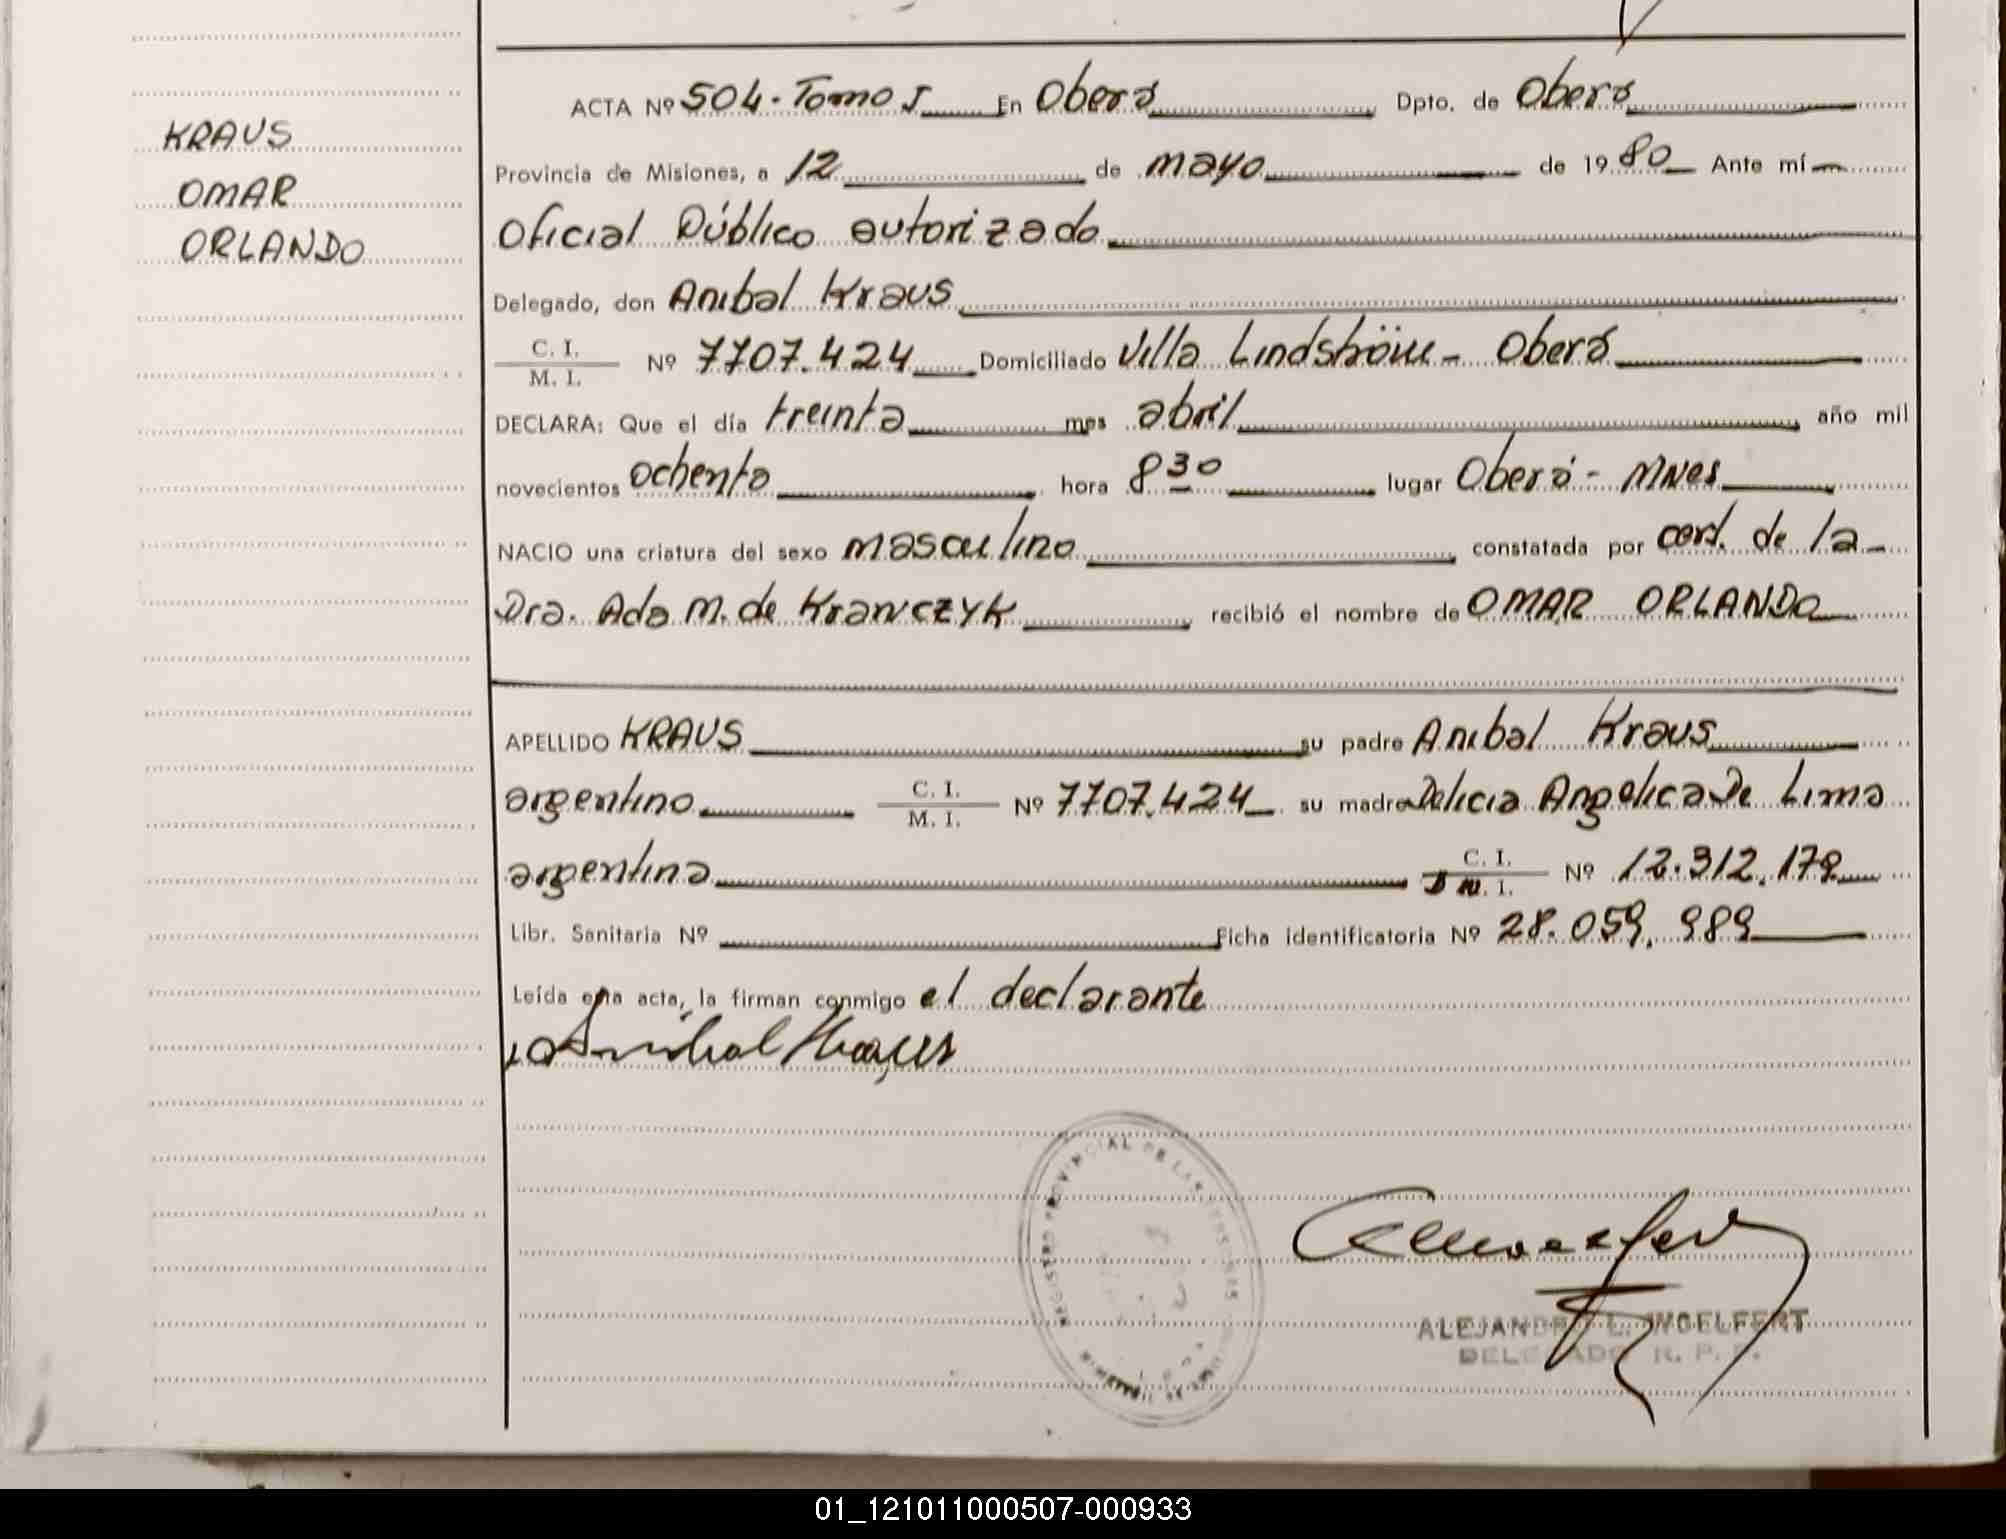 KRAUS
OMAR
ORLANDO
ACTA Nº 504 - Tomo I En Oberá Dpto. de Oberá
Provincia de Misiones, a 12 de mayo de 1980 Ante mí
Oficial Público autorizado
Delegado, don Anibal Kraus
C. I. / M. I. Nº 7707.424 Domiciliado Villa Lindström - Oberá
DECLARA: Que el día treinta mes abril año mil
novecientos ochenta hora 8 30 lugar Oberá - Mnes
NACIO una criatura del sexo masculino constatada por cert. de la
Dra. Ada M. de Krawczyk recibió el nombre de OMAR ORLANDO
APELLIDO KRAUS su padre Anibal Kraus
argentino C. I. / M. I. Nº 7707.424 su madre Delicia Angelica De Lima
argentina C. I. / D N. I. Nº 12.312.179
Libr. Sanitaria Nº Ficha identificatoria Nº 28.059.989
Leída esta acta, la firman conmigo el declarante
Anibal Kraus
REGISTRO PROVINCIAL DE LAS PERSONAS
ALEJANDRO L. WOELFERT
DELEGADO R. P. P.
01_121011000507-000933